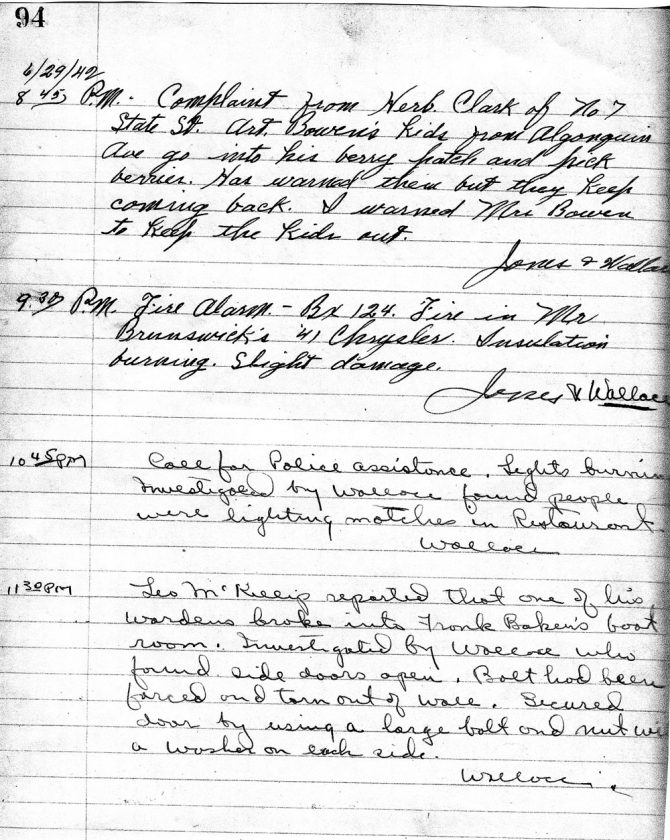 94
6/29/42
8 45 P.M. Complaint from Herb. Clark of No 7
State St. Art. Bowen's kids from Algonquin
Ave go into his berry patch and pick
berries. Has warned them but they keep
coming back. I warned Mrs Bowen
to keep the kids out.
Jones & Wallac
9 30 P.M. Fire Alarm. - Bx 124. Fire in Mr
Brunswick's '41 Chrysler. Insulation
burning. Slight damage.
Jones & Wallace
10 45 PM Call for Police assistance. Lights burnin
Investigated by Wallace found people
were lighting matches in Restaurant.
Wallace
11 30 PM Leo McKillip reported that one of his
wardens broke into Frank Baker's boat
room. Investigated by Wallace who
found side doors open. Bolt had been
forced and torn out of wall. Secured
door by using a large bolt and nut wi
a washer on each side.
Wallace